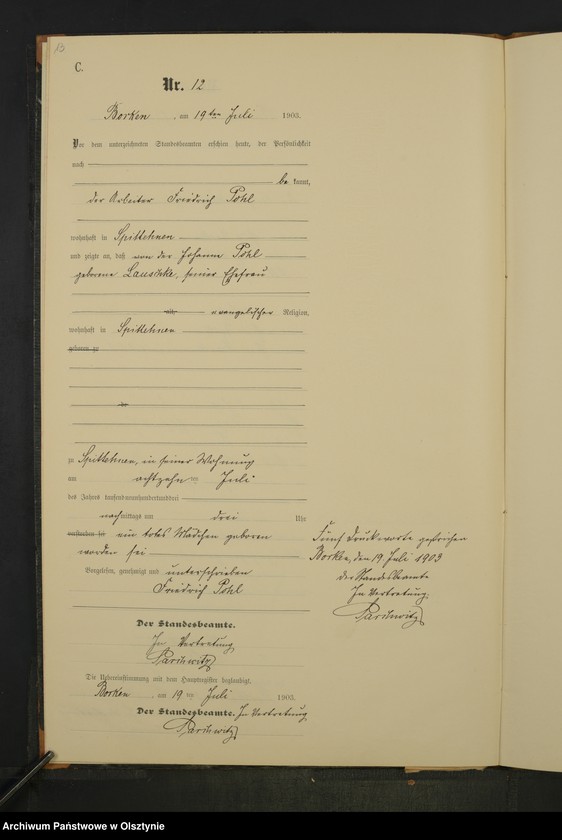 13
C.
Nr. 12
Borken, am 19ten Juli 1903.
Vor dem unterzeichneten Standesbeamten erschien heute, der Persönlichkeit
nach
be kannt,
der Arbeiter Friedrich Pohl
wohnhaft in Spittehnen
und zeigte an, daß von der Johanna Pohl
geborene Lauschke, seiner Ehefrau
alt, evangelischer Religion,
wohnhaft in Spittehnen
geboren zu
der
zu Spittehnen, in seiner Wohnung
am achtzehn ten Juli
des Jahres tausendneunhundertunddrei
nachmittags um drei Uhr
verstorben sei ein totes Mädchen geboren
worden sei
Vorgelesen, genehmigt und unterschrieben
Friedrich Pohl
Fünf Druckworte gestrichen
Borken, den 19 Juli 1903
Der Standesbeamte
In Vertretung
Parschwitz
Der Standesbeamte.
In Vertretung
Parschwitz
Die Uebereinstimmung mit dem Hauptregister beglaubigt.
Borken, am 19 ten Juli 1903.
Der Standesbeamte. In Vertretung
Parschwitz
Archiwum Państwowe w Olsztynie